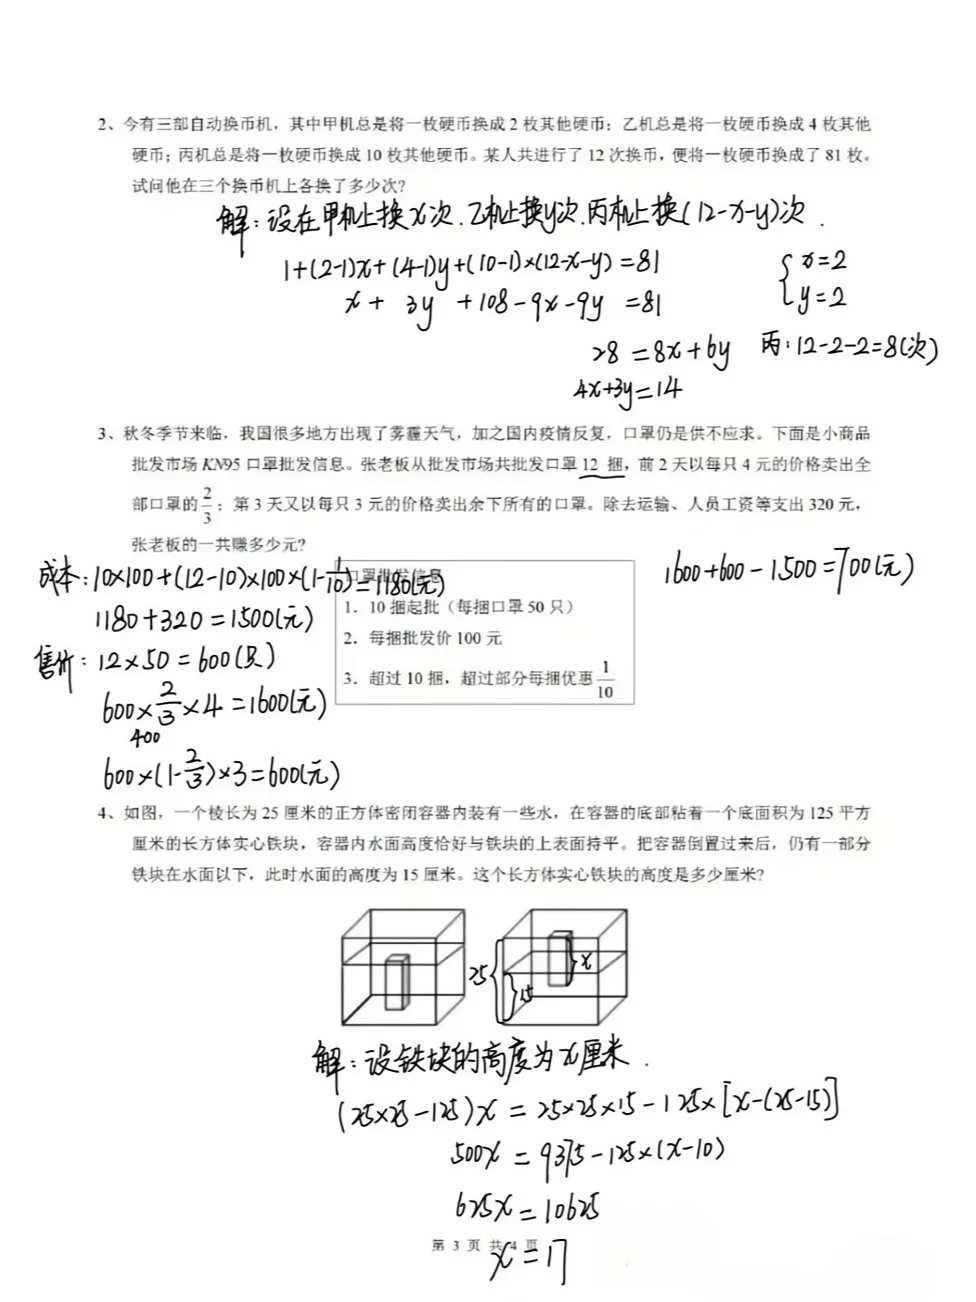 2、今有三部自动换币机，其中甲机总是将一枚硬币换成 2 枚其他硬币；乙机总是将一枚硬币换成 4 枚其他
硬币；丙机总是将一枚硬币换成 10 枚其他硬币。某人共进行了 12 次换币，便将一枚硬币换成了 81 枚。
试问他在三个换币机上各换了多少次？
解：设在甲机上换x次.乙机上换y次.丙机上换(12-x-y)次.
1+(2-1)x+(4-1)y+(10-1)×(12-x-y)=81
x+ 3y +108-9x-9y =81
28 =8x+6y
4x+3y=14
{x=2
y=2
丙：12-2-2=8(次)
3、秋冬季节来临，我国很多地方出现了雾霾天气，加之国内疫情反复，口罩仍是供不应求。下面是小商品
批发市场 KN95 口罩批发信息。张老板从批发市场共批发口罩 12 捆，前 2 天以每只 4 元的价格卖出全
部口罩的 2/3；第 3 天又以每只 3 元的价格卖出余下所有的口罩。除去运输、人员工资等支出 320 元，
张老板的一共赚多少元？
成本：10×100+(12-10)×100×(1-1/10)=1180(元)
1180+320=1500(元)
售价：12×50=600(只)
600×2/3×4=1600(元)
400
600×(1-2/3)×3=600(元)
1600+600-1500=700(元)
口罩批发信息
1．10 捆起批（每捆口罩 50 只）
2．每捆批发价 100 元
3．超过 10 捆，超过部分每捆优惠 1/10
4、如图，一个棱长为 25 厘米的正方体密闭容器内装有一些水，在容器的底部粘着一个底面积为 125 平方
厘米的长方体实心铁块，容器内水面高度恰好与铁块的上表面持平。把容器倒置过来后，仍有一部分
铁块在水面以下，此时水面的高度为 15 厘米。这个长方体实心铁块的高度是多少厘米？
25
15
x
解：设铁块的高度为x厘米.
(25×25-125)x=25×25×15-125×[x-(25-15)]
500x=9375-125×(x-10)
625x=10625
x=17
第 3 页 共 4 页